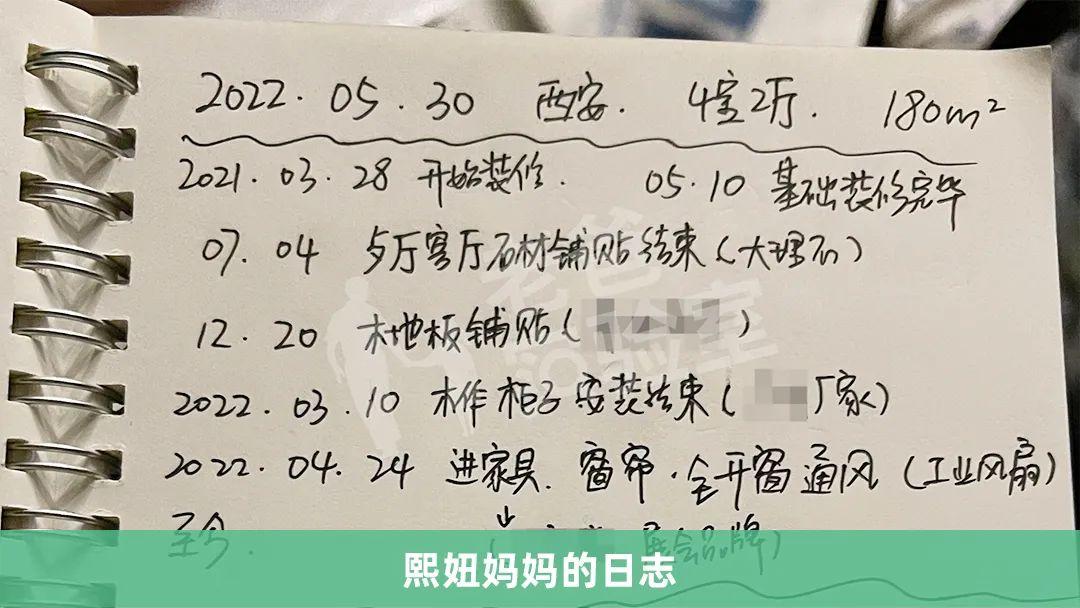 2022.05.30 西安. 4室2厅. 180m²
2021.03.28 开始装修. 05.10 基础装修完毕
07.04 歺厅客厅石材铺贴结束(大理石)
12.20 木地板铺贴( )
2022.03.10 木作柜子安装结束( 厂家)
2022.04.24 进家具. 窗帘.全开窗通风(工业风扇)
至今. ( 品牌)
老爸
评测室
熙妞妈妈的日志